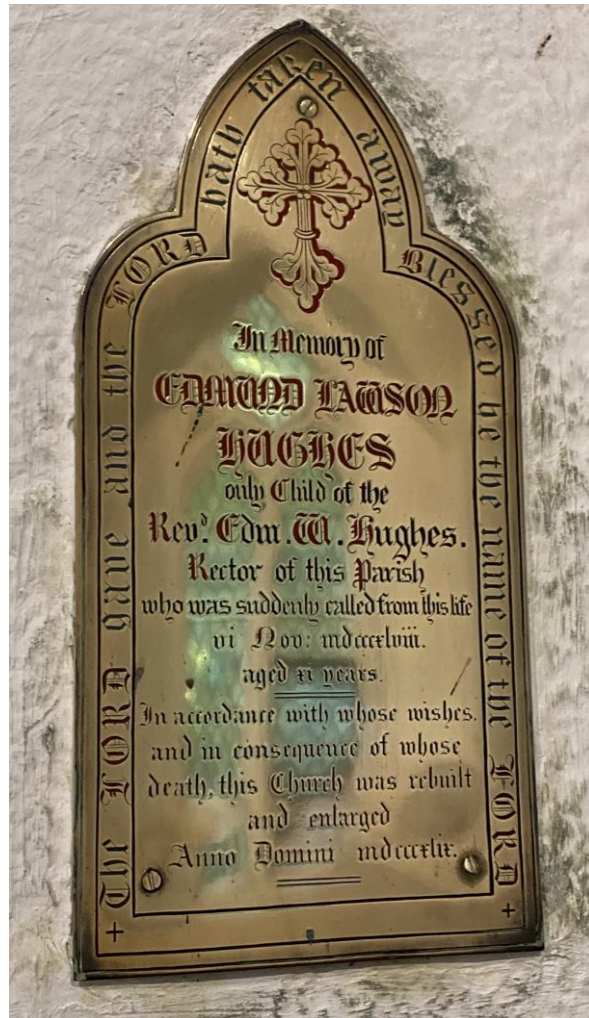 + The LORD gave and the LORD hath taken away Blessed be the name of the LORD +
In Memory of
EDMUND LAWSON
HUGHES
only Child of the
Revd. Edm. W. Hughes.
Rector of this Parish
who was suddenly called from this life
vi Nov: mdcccxlviii.
aged xi years.
In accordance with whose wishes.
and in consequence of whose
death, this Church was rebuilt
and enlarged
Anno Domini mdcccxlix.